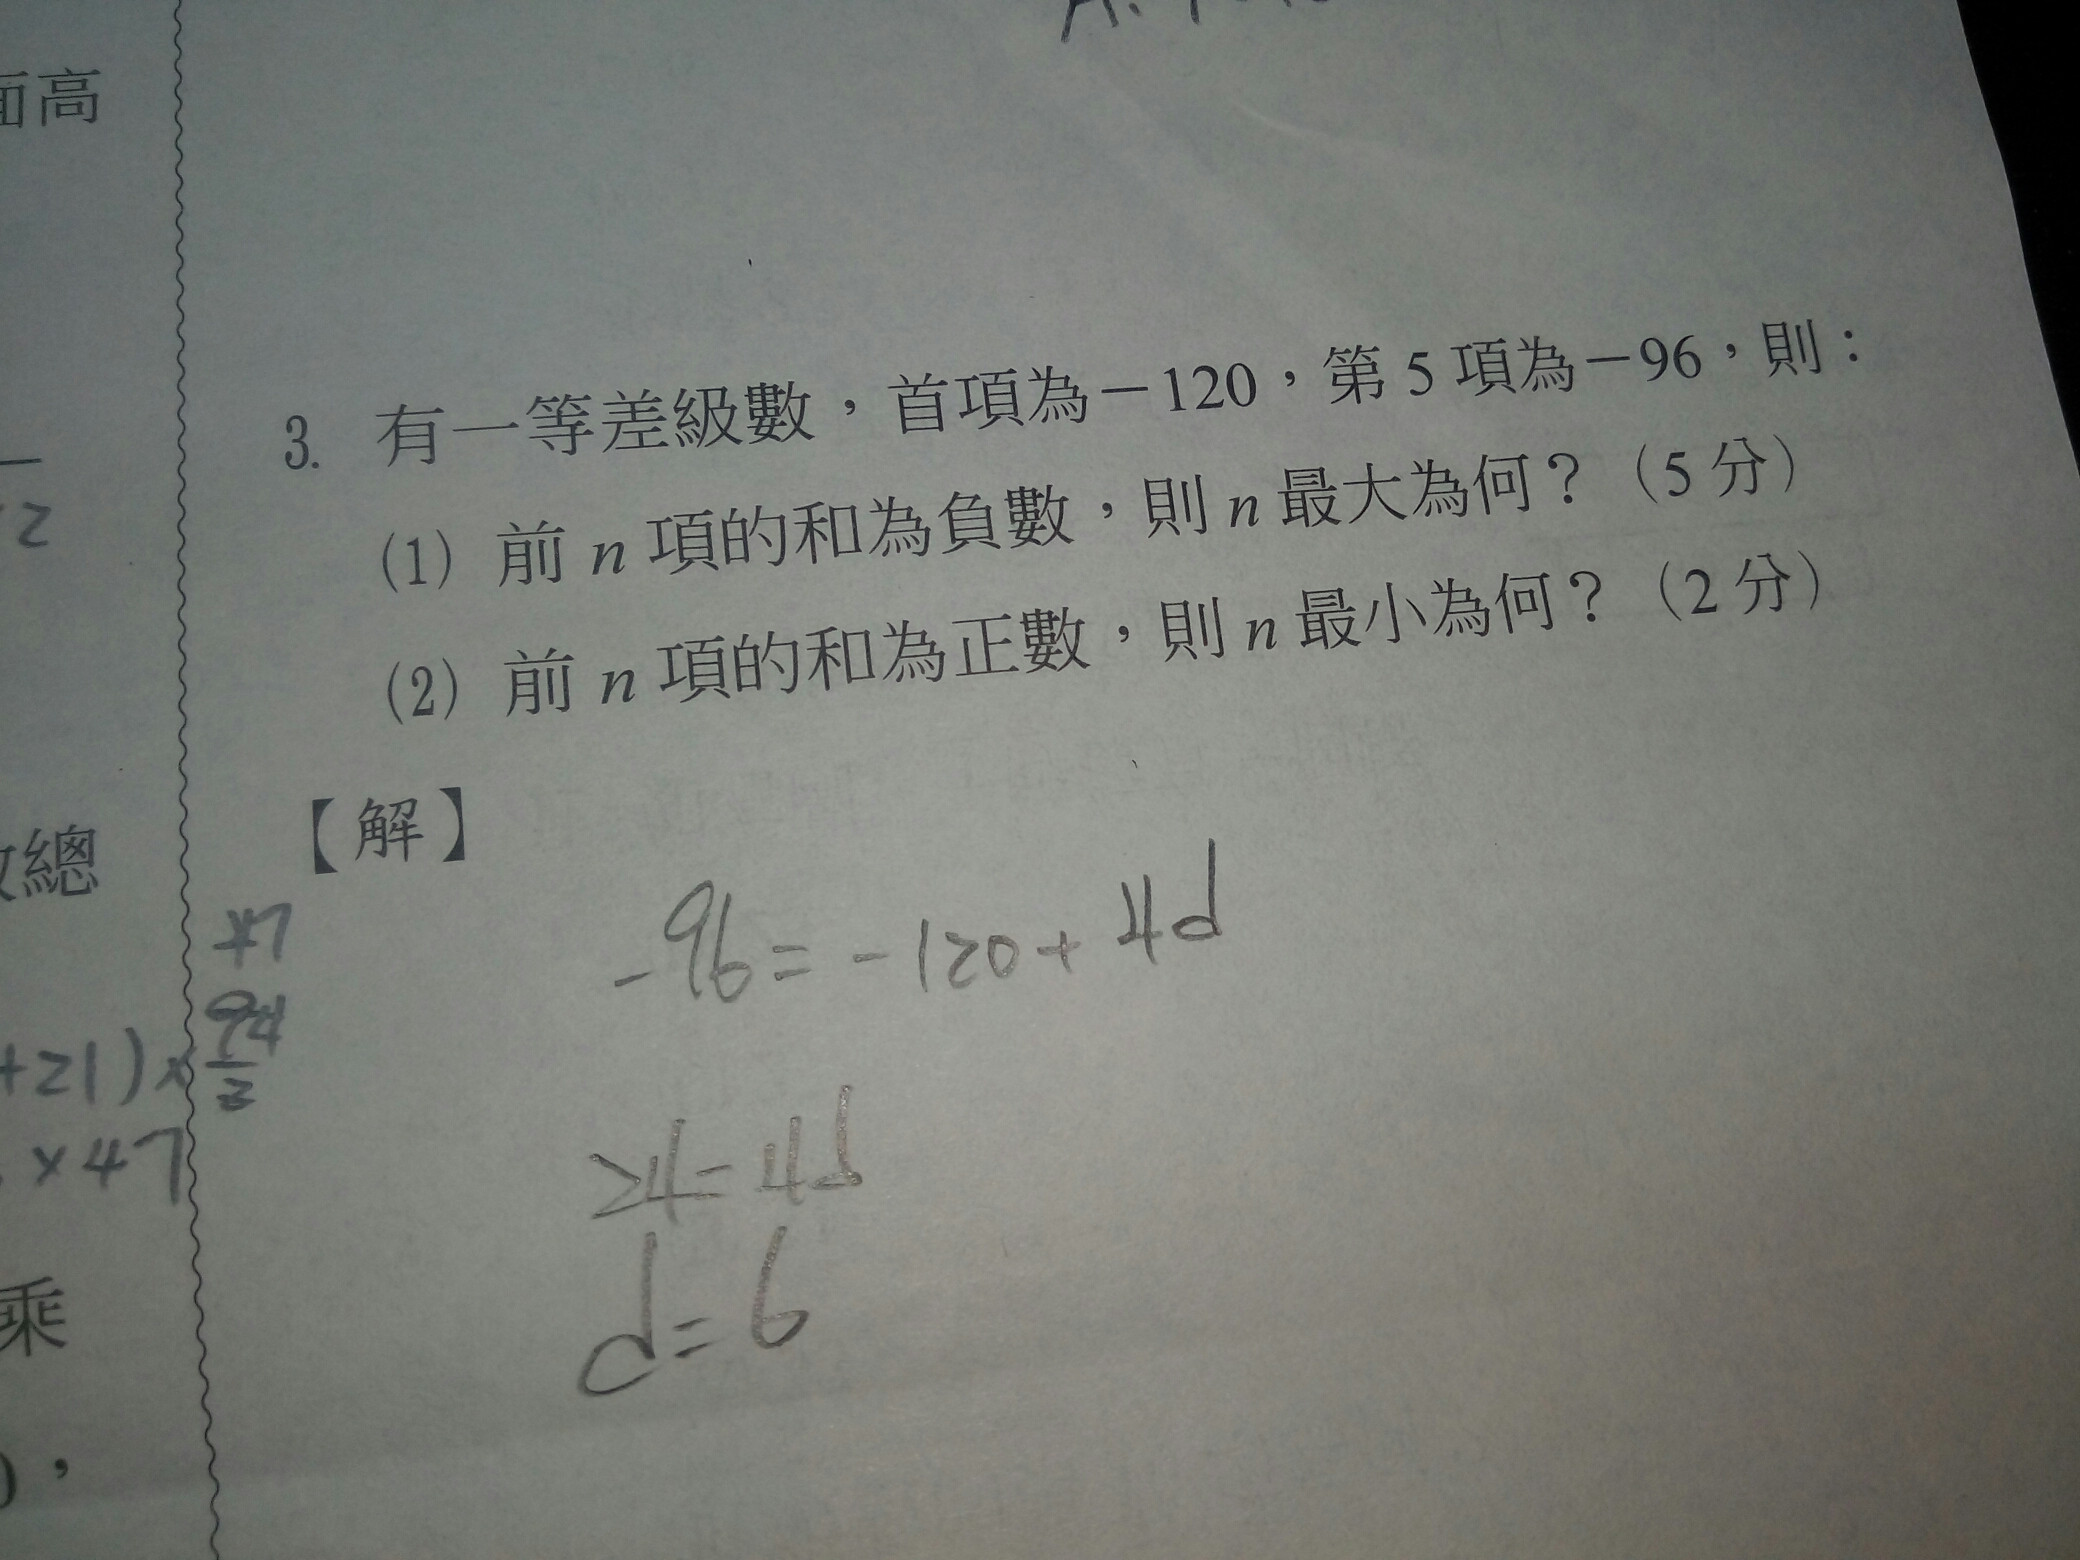 面高
2
3. 有一等差級數，首項為－120，第 5 項為－96，則：
(1) 前 n 項的和為負數，則 n 最大為何？（5 分）
(2) 前 n 項的和為正數，則 n 最小為何？（2 分）
【解】
-96=-120+4d
24=4d
d=6
總
47
+21)×
2
×47
乘
，